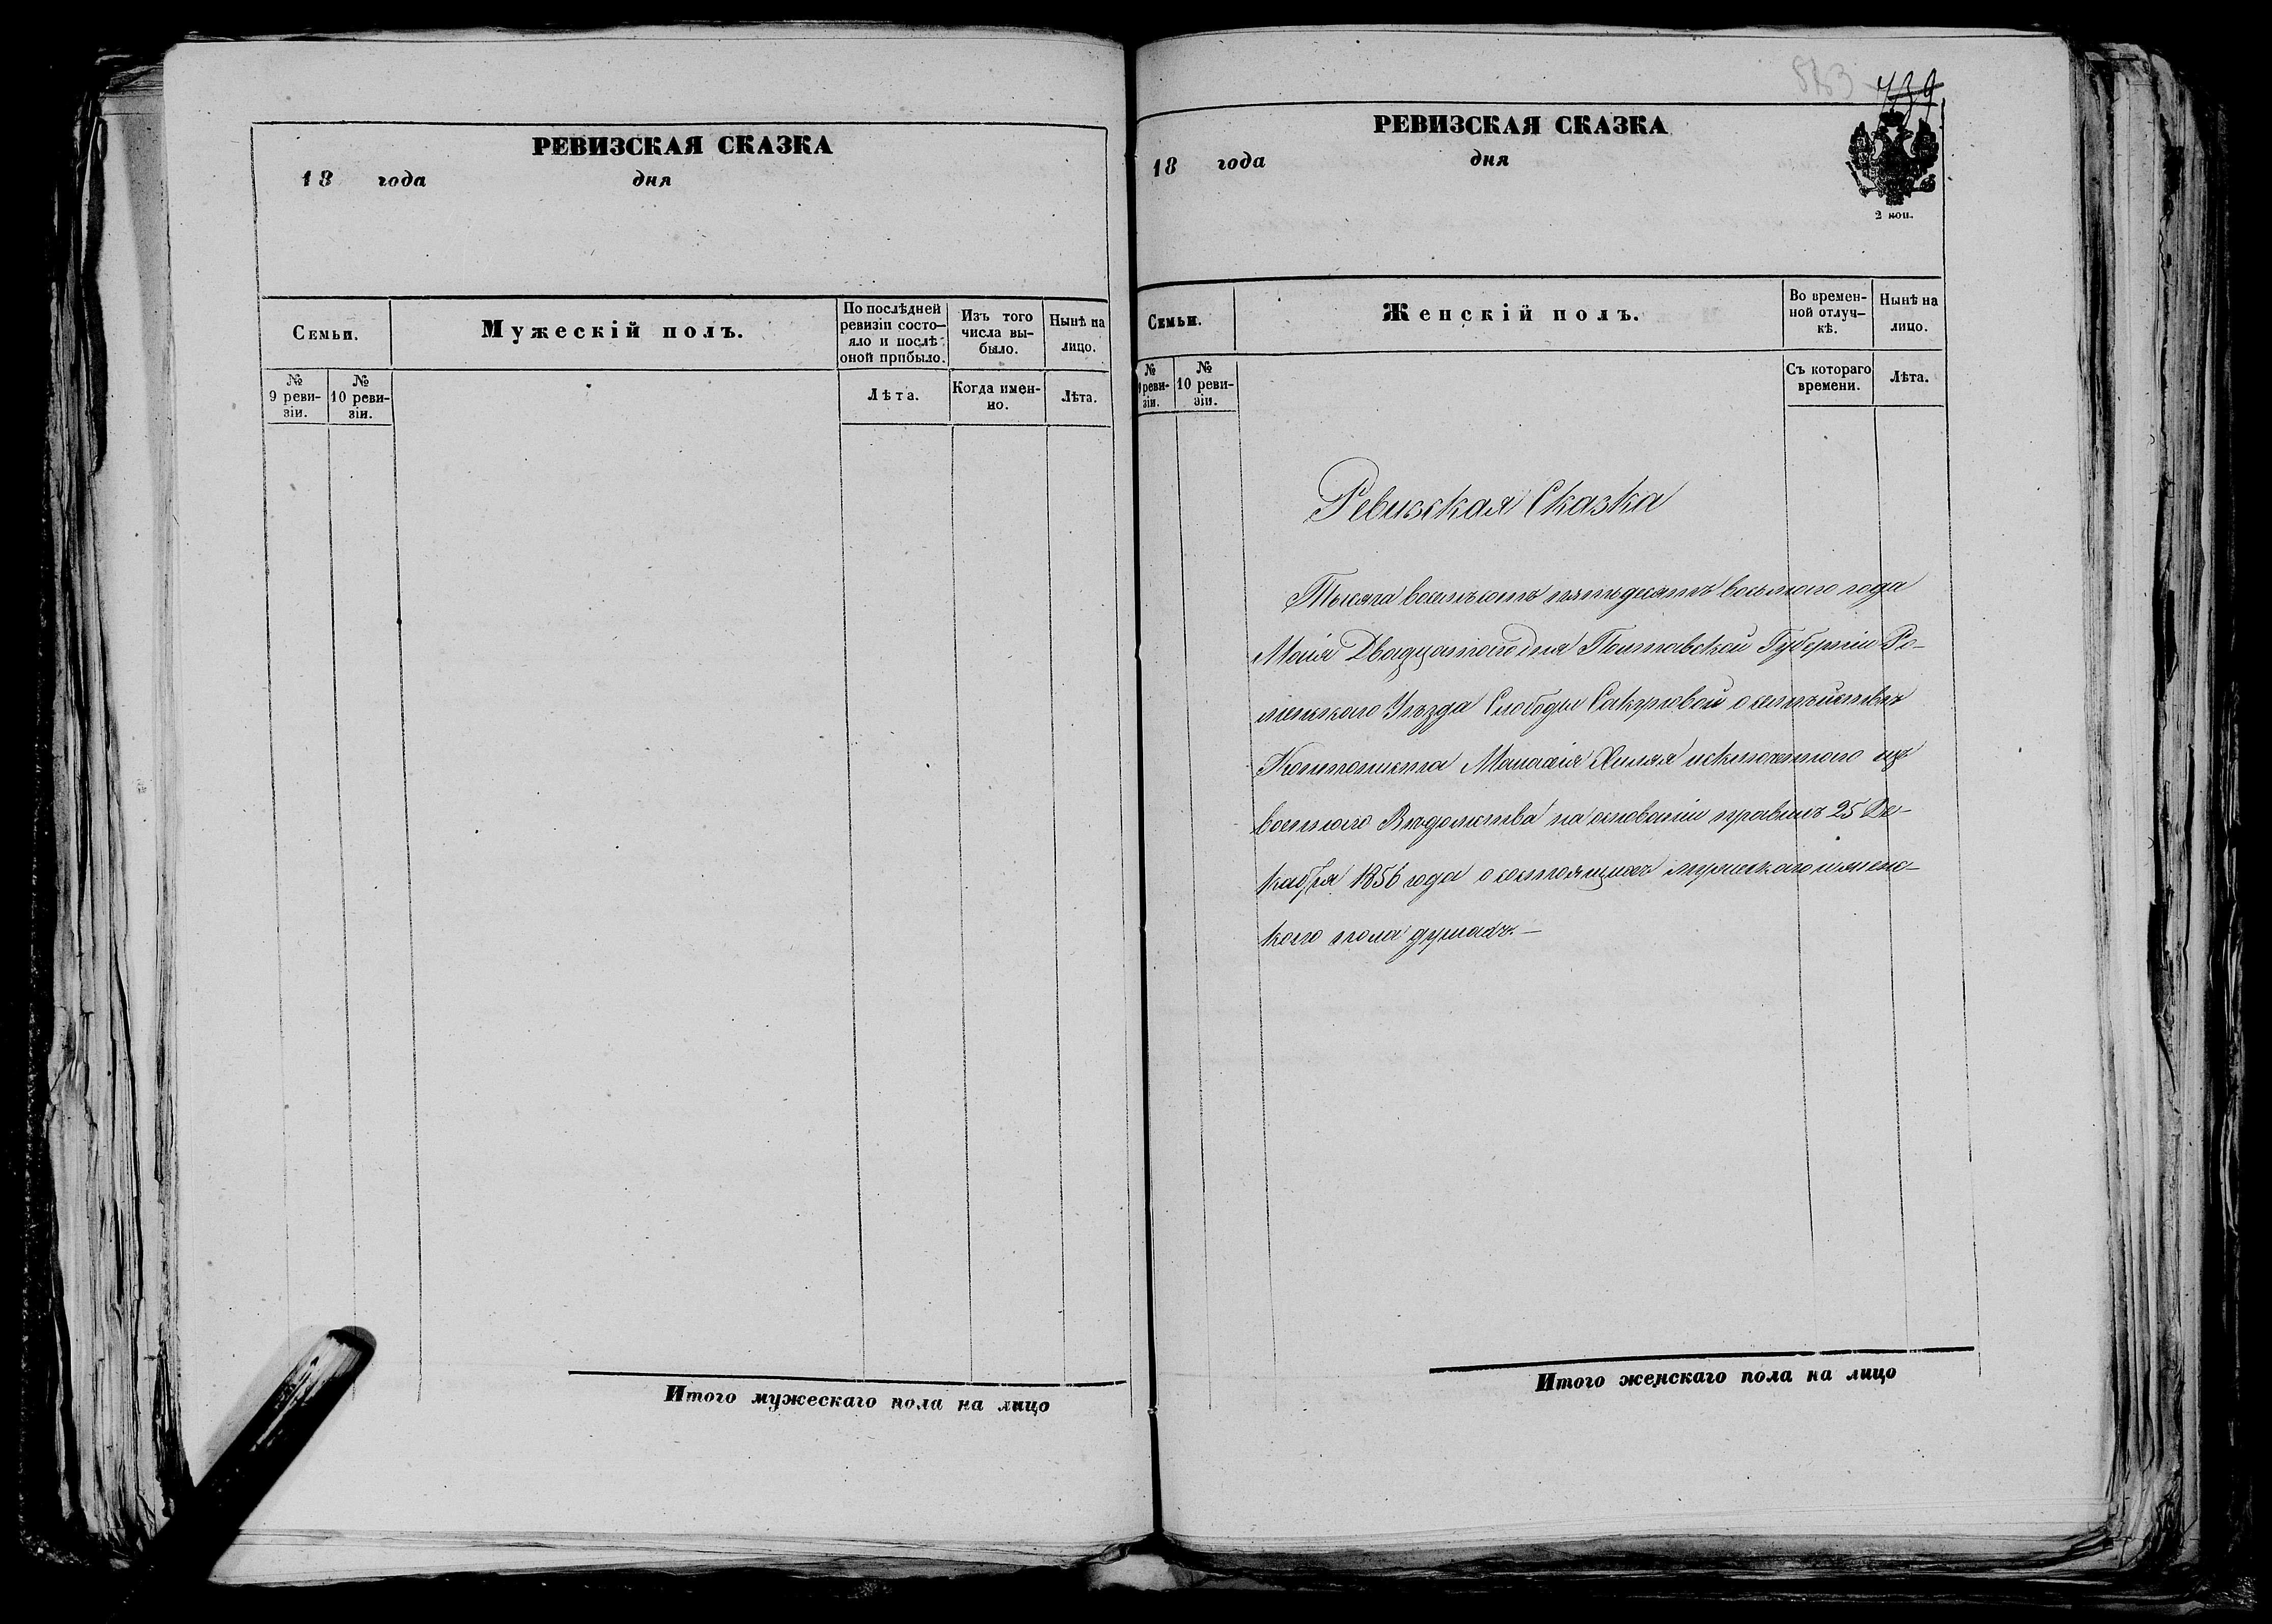 РЕВИЗСКАЯ СКАЗКА
18 года дня
Семьи.
Мужескій полъ.
По послѣдней
ревизіи состо-
яло и послѣ
оной прибыло.
Изъ того
числа вы-
было.
Нынѣ на
лицо.
№
9 реви-
зіи.
№
10 реви-
зіи.
Лѣта.
Когда имен-
но.
Лѣта.
Итого мужескаго пола на лицо
583 739
РЕВИЗСКАЯ СКАЗКА
18 года дня
2 коп.
Семьи.
Женскій полъ.
Во времен-
ной отлуч-
кѣ.
Нынѣ на
лицо.
№
9 реви-
зіи.
№
10 реви-
зіи.
Съ котораго
времени.
Лѣта.
Ревизская Сказка
Тысяча восемьсотъ пятьдесятъ восьмого года
Маія Двадцатого дня Полтавской Губерніи Ро-
менского Уѣзда Слободы Сакуновой о семѣйствѣ
Кантониста исключенного изъ
военного Вѣдомства на основаніи правилъ 25 Де-
кабря 1856 года о состоящихъ мужеского и женс-
кого пола душахъ.—
Итого женскаго пола на лицо